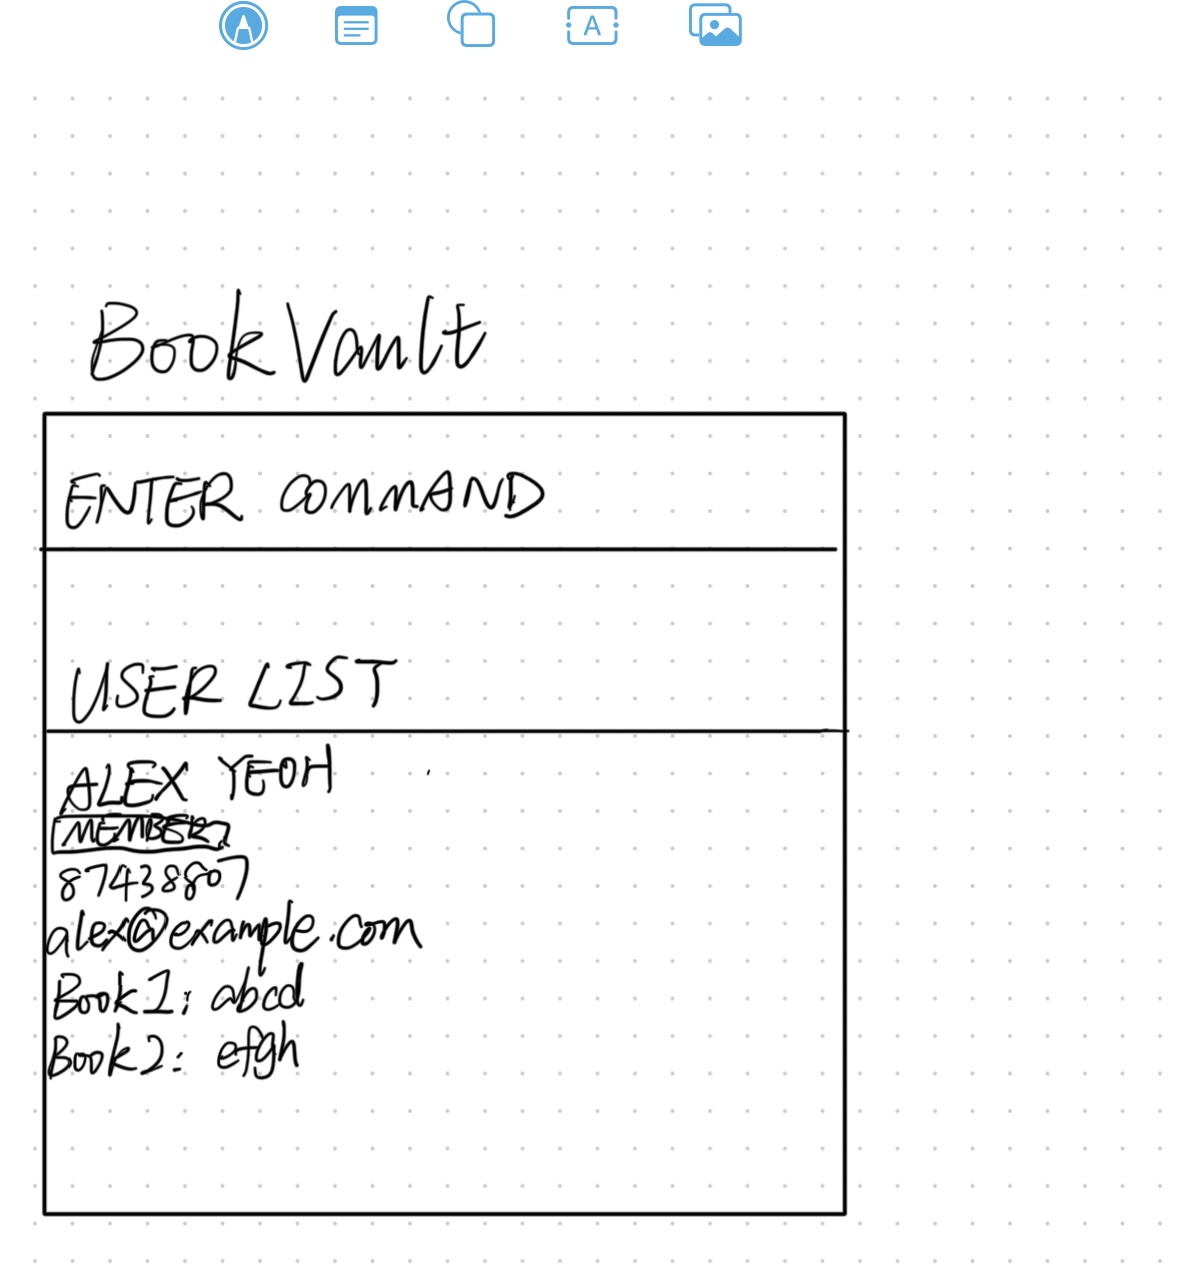 Book Vault
ENTER COMMAND
USER LIST
ALEX YEOH
MEMBER
87438807
alex@example.com
Book1: abcd
Book2: efgh